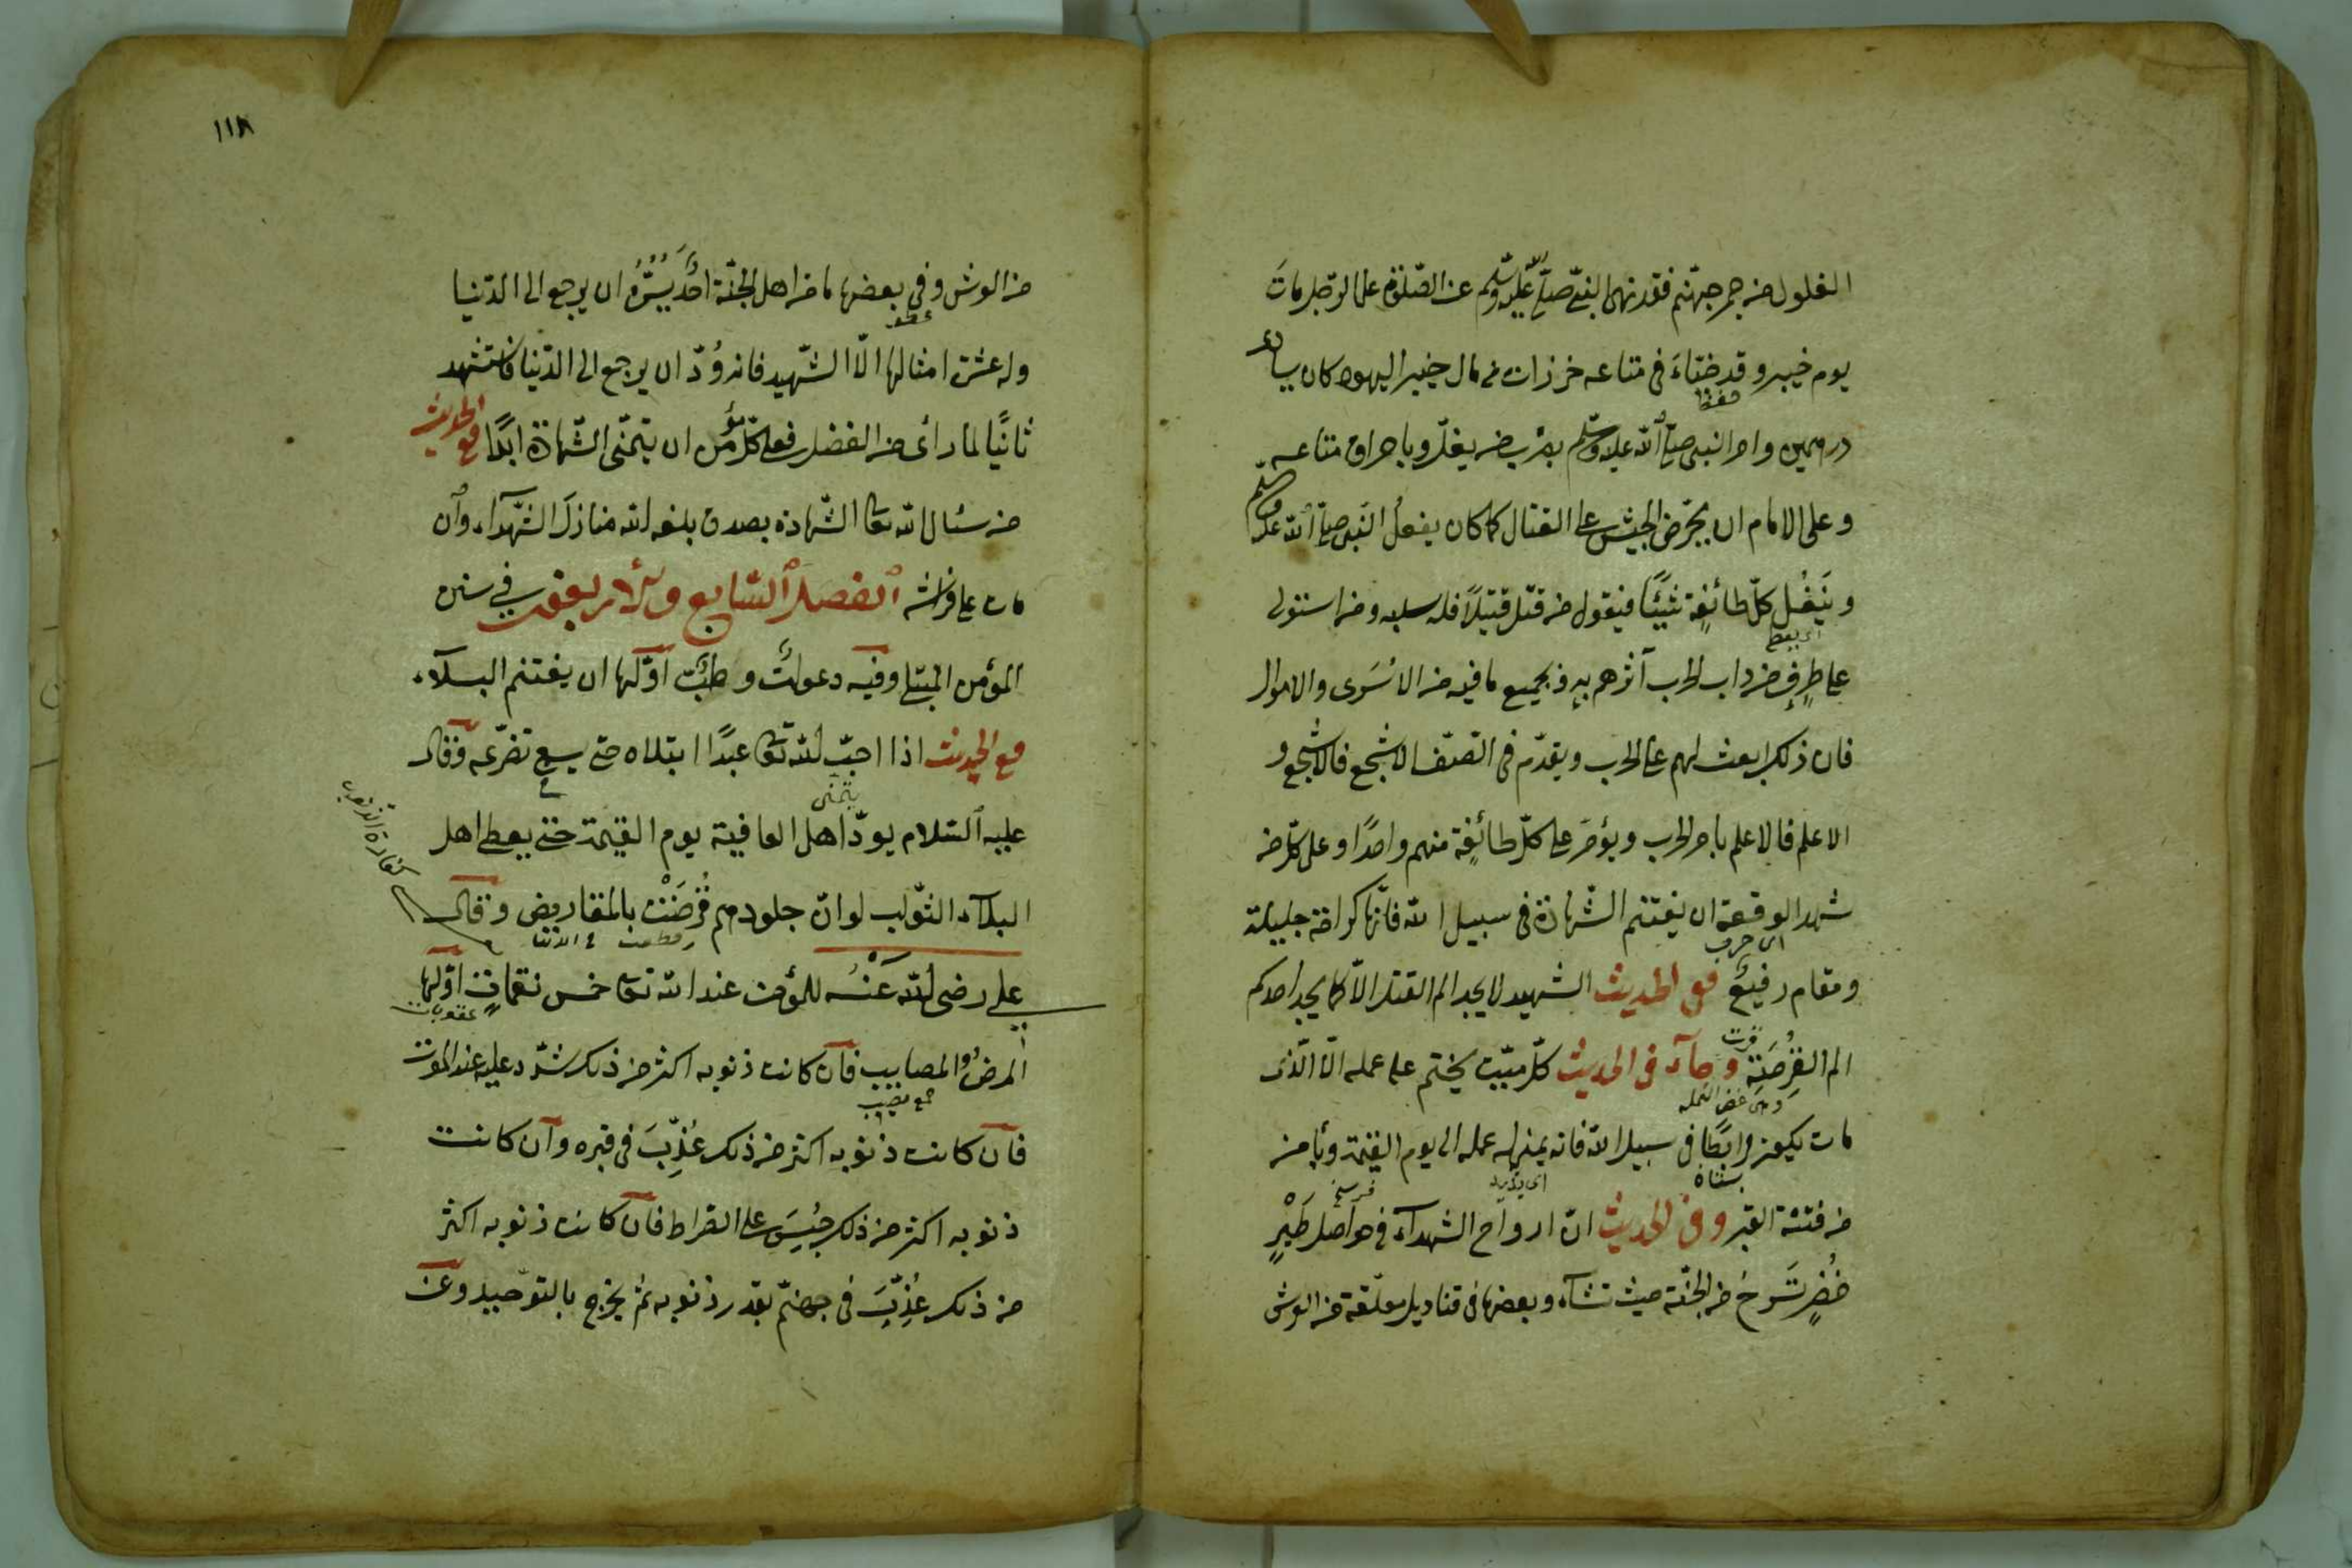 الغلول من جمر جهنم فقد نهى النبى صلى الله عليه وسلم عن الصلوة على الرجل مات
يوم خيبر وقد خبّاءَ فى متاعه خرزات من مال خيبر اليهود كان يساوى
درهمين وامر النبى صلى الله عليه وسلم بضرب من يغلّ وباحراق متاعه
وعلى الامام ان يحرّض الجيش على القتال كما كان يفعل النبى صلى الله عليه وسلم
وينَفّل كلّ طائفة شيئًا فيقول من قتل قتيلاً فله سلبه ومن استولى
على طرفٍ من داب الحرب آثرهم به بجميع ما فيه من الاسرى والاموال
فان ذلك ابعث لهم على الحرب ويقدّم فى الصّف الاشجع فالاشجع و
الاعلم فالاعلم بامر الحرب ويؤمر على كلّ طائفة منهم واحدًا وعلى كلّ من
شهد الوقعة ان يغتنم الشّهادة فى سبيل الله فانّها كرامة جليلة
ومقام رفيعٌ فى الحديث الشهيد لا يجد الم القتل الّا كما يجد احدكم
الم القرصَة وجآء فى الحديث كلّ ميّت يختم على عمله الّا الّذى
مات يكون مرابطًا فى سبيل الله فانه ينمى له عمله الى يوم القيمة ويأمن
من فتنة القبر وفى الحديث انّ ارواح الشهدآء فى حواصل طَيْرٍ
خُضْرٍ تسرح من الجنّة حيث تشآء وبعضها فى قناديل معلّقة من العرش
١١٨
من العرش وفى بعضها ما من اهل الجنّة احدٌ يَسُرُّهُ ان يرجع الى الدّنيا
وله عشرة امثالها الّا الشّهيد فانه وُدّ ان يرجع الى الدّنيا فاستشهد
ثانيًا لما رأى من الفضل فعلى كلّ مؤمن ان يتمنّى الشّهادة ابدًا فى الحديث
من سئال الله تعالى الشّهادة بصدق بلغه الله منازل الشّهدآء وان
مات على فراشه الفصل السّابع والاربعون فى سنن
المؤمن المبتلى وفيه دعوات وطبّ اوّلها ان يغتنم البلآء
فى الحديث اذا احبّ الله تعالى عبدًا ابتلاه حتى يسمع تضرّعه وقال
عليه السّلام يودّ اهل العافية يوم القيمة حتى يعطى اهل
يتمنى
البلآء الثّواب لو انّ جلودهم قُرضَتْ بالمقاريض وقال
على رضى الله عَنْه للمؤمن عند الله تعالى خمس نقماتٍ اوّلها
عقوبات
المرضُ والمصايب فان كانت ذنوبه اكثر من ذلك شدّد عليه عند الموت
فان كانت ذنوبه اكثر من ذلك عُذِّبَ فى قبره وان كانت
ذنوبه اكثر من ذلك حُبِسَ على الصّراط فان كانت ذنوبه اكثر
من ذلك عُذِّبَ فى جهنّم بقدر ذنوبه ثم يخرج بالتّوحيد وعن